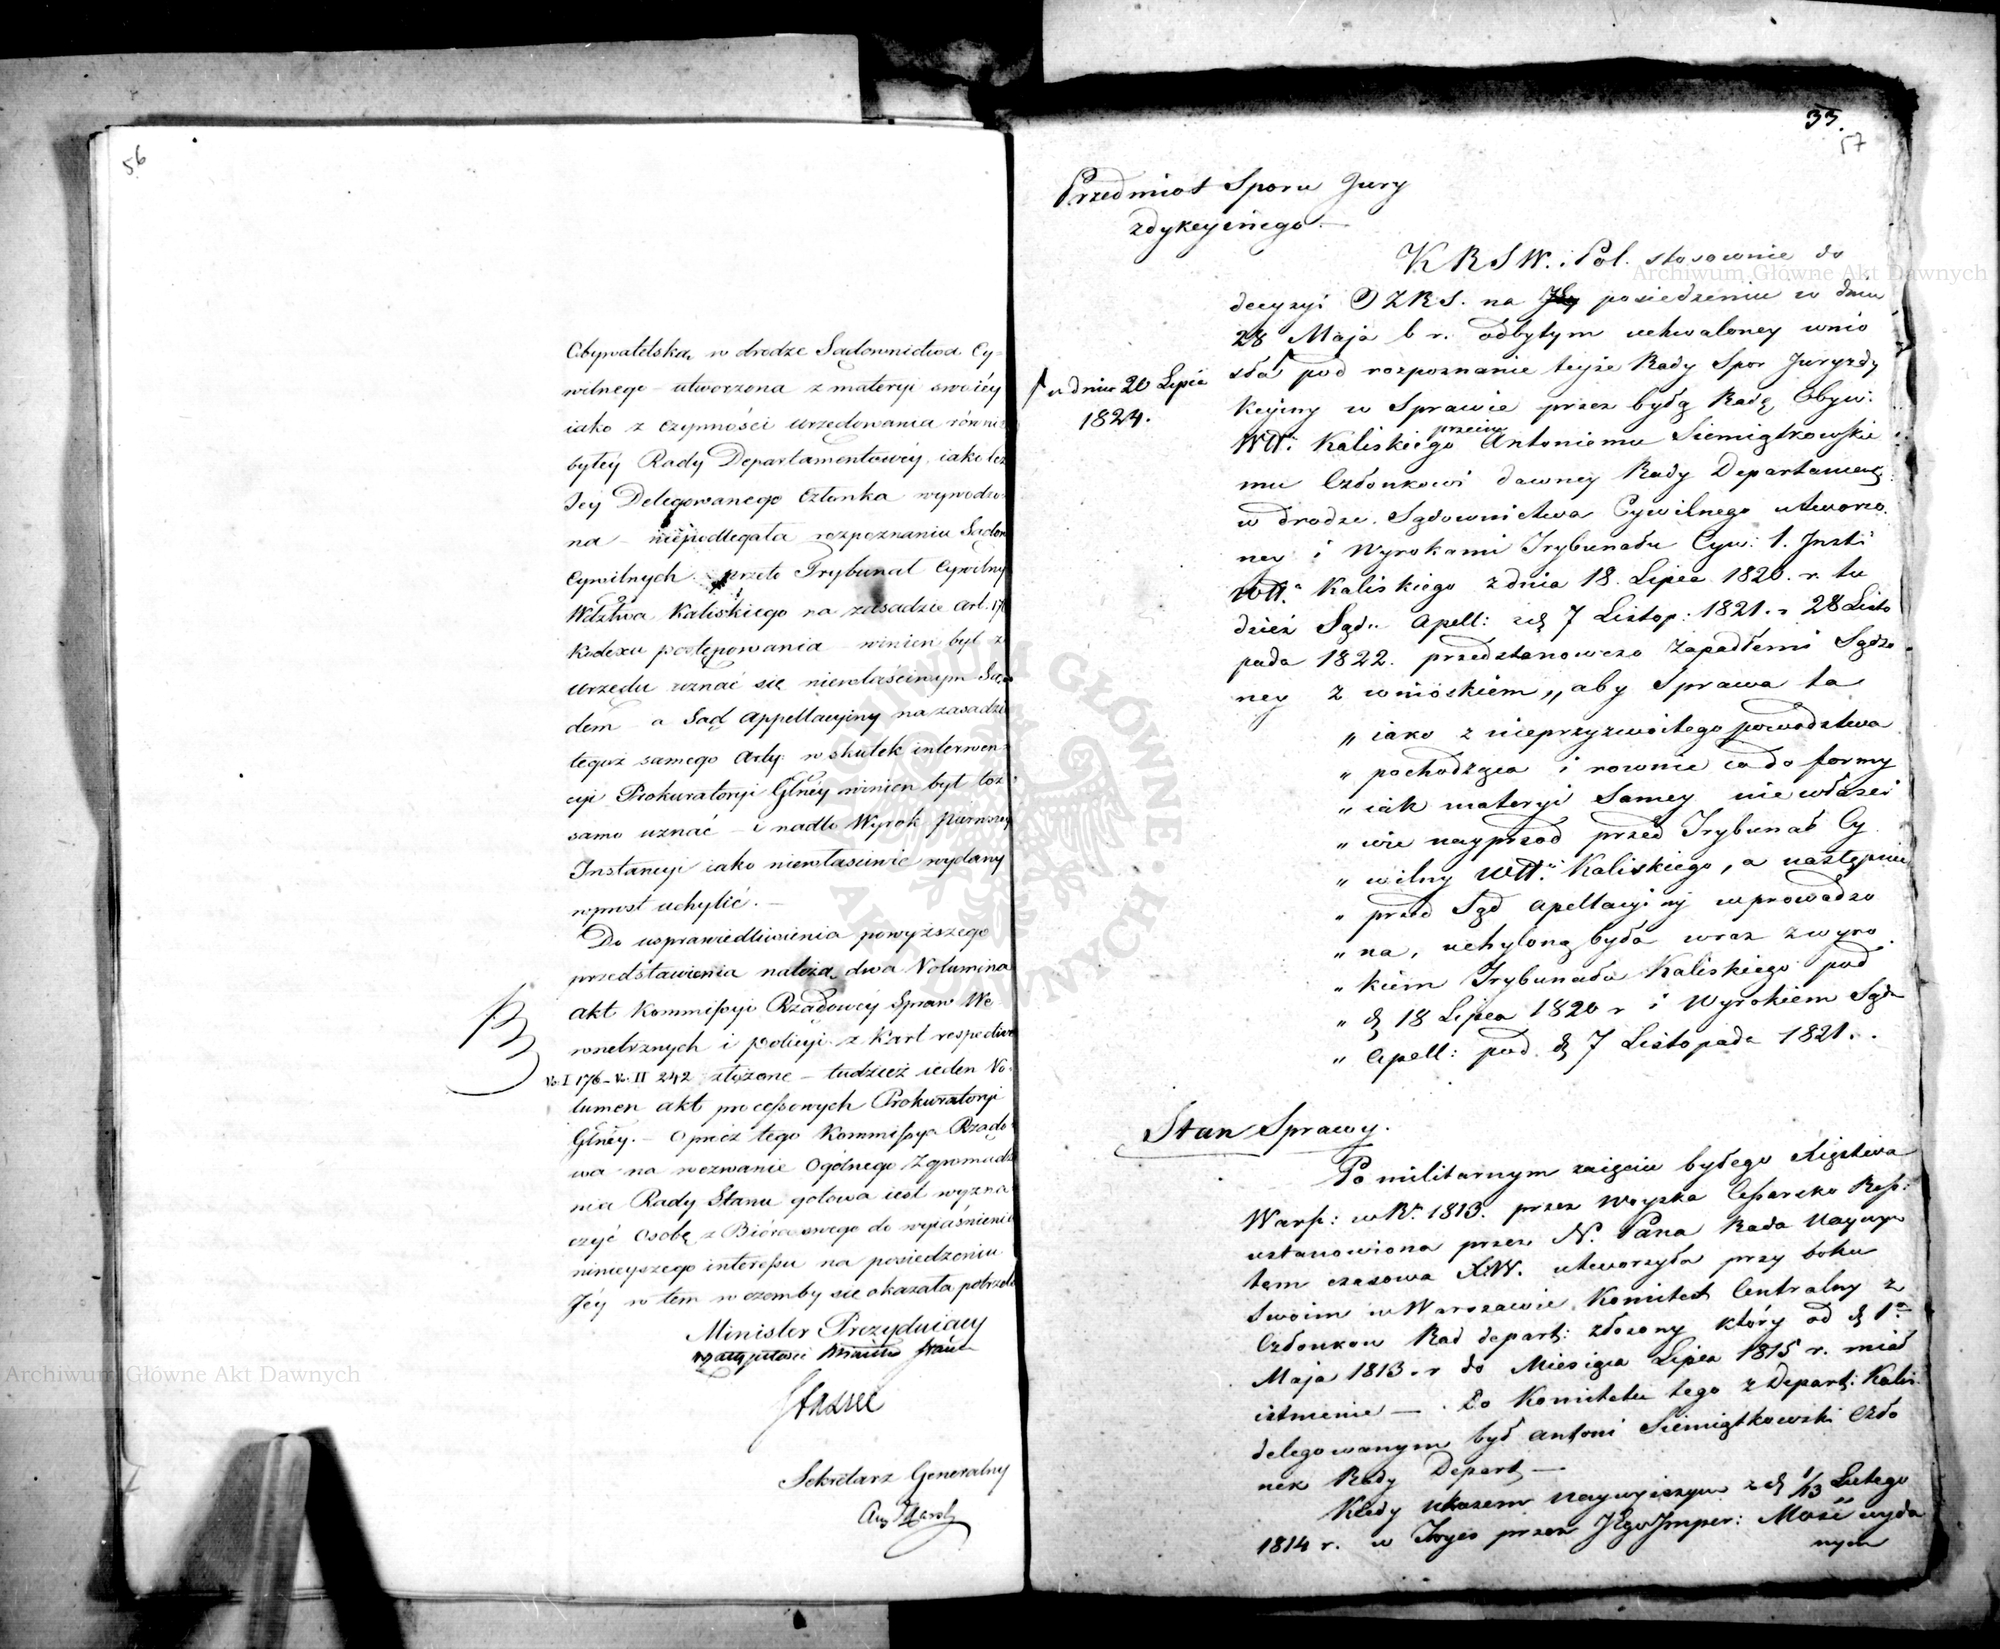 56
Obywatelska, w drodze Sądownictwa Cy-
wilnego – utworzona z materyi swoiéy
iako z czynności urzędowania równie
byłéy Rady Departamentowéy, iako też
Jéy Delegowanego Członka wywodzo-
na – niepodlegała rozpoznaniu Sądów
Cywilnych – przeto Trybunał Cywilny
Wdztwa Kaliskiego na zasadzie art. 170
Kodexu postępowania – winien był z
urzędu uznać się niewłaściwym Są-
dem – a Sąd Appellacyiny na zasadzie
teguż samego Artu: w skutek interwen-
cyi Prokuratoryi Glnéy winien był toż
samo uznać – i nadto Wyrok pierwszéy
Instancyi iako niewłaściwie wydany
wprost uchylić. –
Do usprawiedliwienia powyższego
przedstawienia należą dwa Volumina
akt Kommissyi Rządowéy Spraw We-
wnetrznych i policyi z Kart respective
Vo. I 176 – Vo. II 242 złożone – tudzież ieden Vo-
lumen akt processowych Prokuratoryi
Glnéy. – Oprócz tego Kommissya Rządo-
wa na wezwanie Ogólnego Zgromadze
nia Rady Stanu gotowa iest wyzna
czyć Osobę z Bióra swego do wyiaśnienia
ninieyszego interessu na posiedzeniu
Jéy w tem w czemby się okazała potrzeba
Minister Prezyduiący
w zastępstwie Minister Stanu
Staszic
Sekretarz Generalny
Aug Karski
33.
57
Przedmiot Sporu Jury
zdykcyinego. –
KRSW. i Pol. stosownie do
decyzyi OZRS. na posiedzeniu w dniu
28 Maja b r. odbytym uchwaloney wnio
sła pod rozpoznanie teyże Rady Spor Juryzdy
w dniu 20 Lipca
1824.
Kcyiny w Sprawie przez byłą Radę Obyw:
Wdt: Kaliskiego przeciw Antoniemu Siemiątkowskie
mu Członkowi dawney Rady Departament:
w drodze Sądownictwa Cywilnego utworzo
ney i Wyrokami Trybunału Cyw: 1. Inst:
Wdt: Kaliskiego z dnia 18. Lipca 1820. r. tu
dzież Sądu Apell: z d. 7 Listop: 1821. r 28 Listo
pada 1822. przedstanowczo zapadłemi Sądzo
ney z wnioskiem „aby Sprawa ta
„ iako z nieprzyzwoitego powodztwa
„ pochodząca i rownie co do formy
„ iak materyi Samey niewłaści
„ wie nayprzod przed Trybunał Cy
„ wilny Wdt: Kaliskiego, a następnie
„ przed Sąd Apellacyiny wprowadzo
„ na, uchyloną była wraz z wyro
„ kiem Trybunału Kaliskiego pod
„ d. 18 Lipca 1820 r i Wyrokiem Sądu
„ Apell: pod d. 7 Listopada 1821. .
Stan Sprawy.
Po militarnym zaięciu byłego Xięstwa
Warsz: w R. 1813. przez woyska Cesarsko Ross:
ustanowiona przez N. Pana Rada Naywyż
tem czasowa X.W. utworzyła przy boku
Swoim w Warszawie Komitet Centralny z
Członkow Rad depart: złożony który od d. 1o
Maja 1813. r do Miesiąca Lipca 1815 r. miał
istnienie – . Do Komitetu tego z Depart: Kalis:
delegowanym był Antoni Siemiątkowski Czło
nek Rady Depart –
Kiedy ukazem naywyższym z d. 1/13 Lutego
1814 r. w Troyes przez JEgo Imper: Mość wyda
nym
Archiwum Główne Akt Dawnych
Archiwum Główne Akt Dawnych
ARCHIWUM GŁÓWNE · AKT DAWNYCH ·